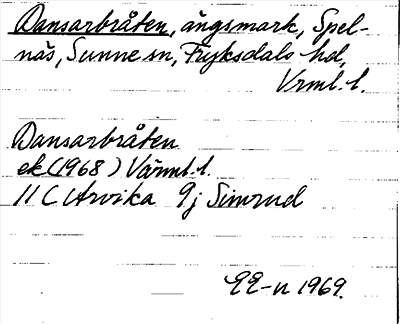 Dansarbråten, ängsmark, Spel-
näs, Sunne sn, Fryksdals hd,
Vrml. l.
Dansarbråten
ek (1968) Värml. l.
11 C Arvika 9j Simrud
1969.